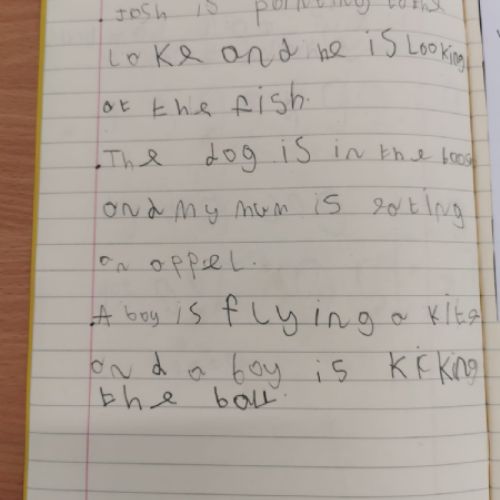 . Josh is pointing to the
Lake and he is Looking
at the fish.
.The dog is in the boat
and My mum is eating
an appel.
.A boy is flying a kite
and a boy is kicking
the ball.